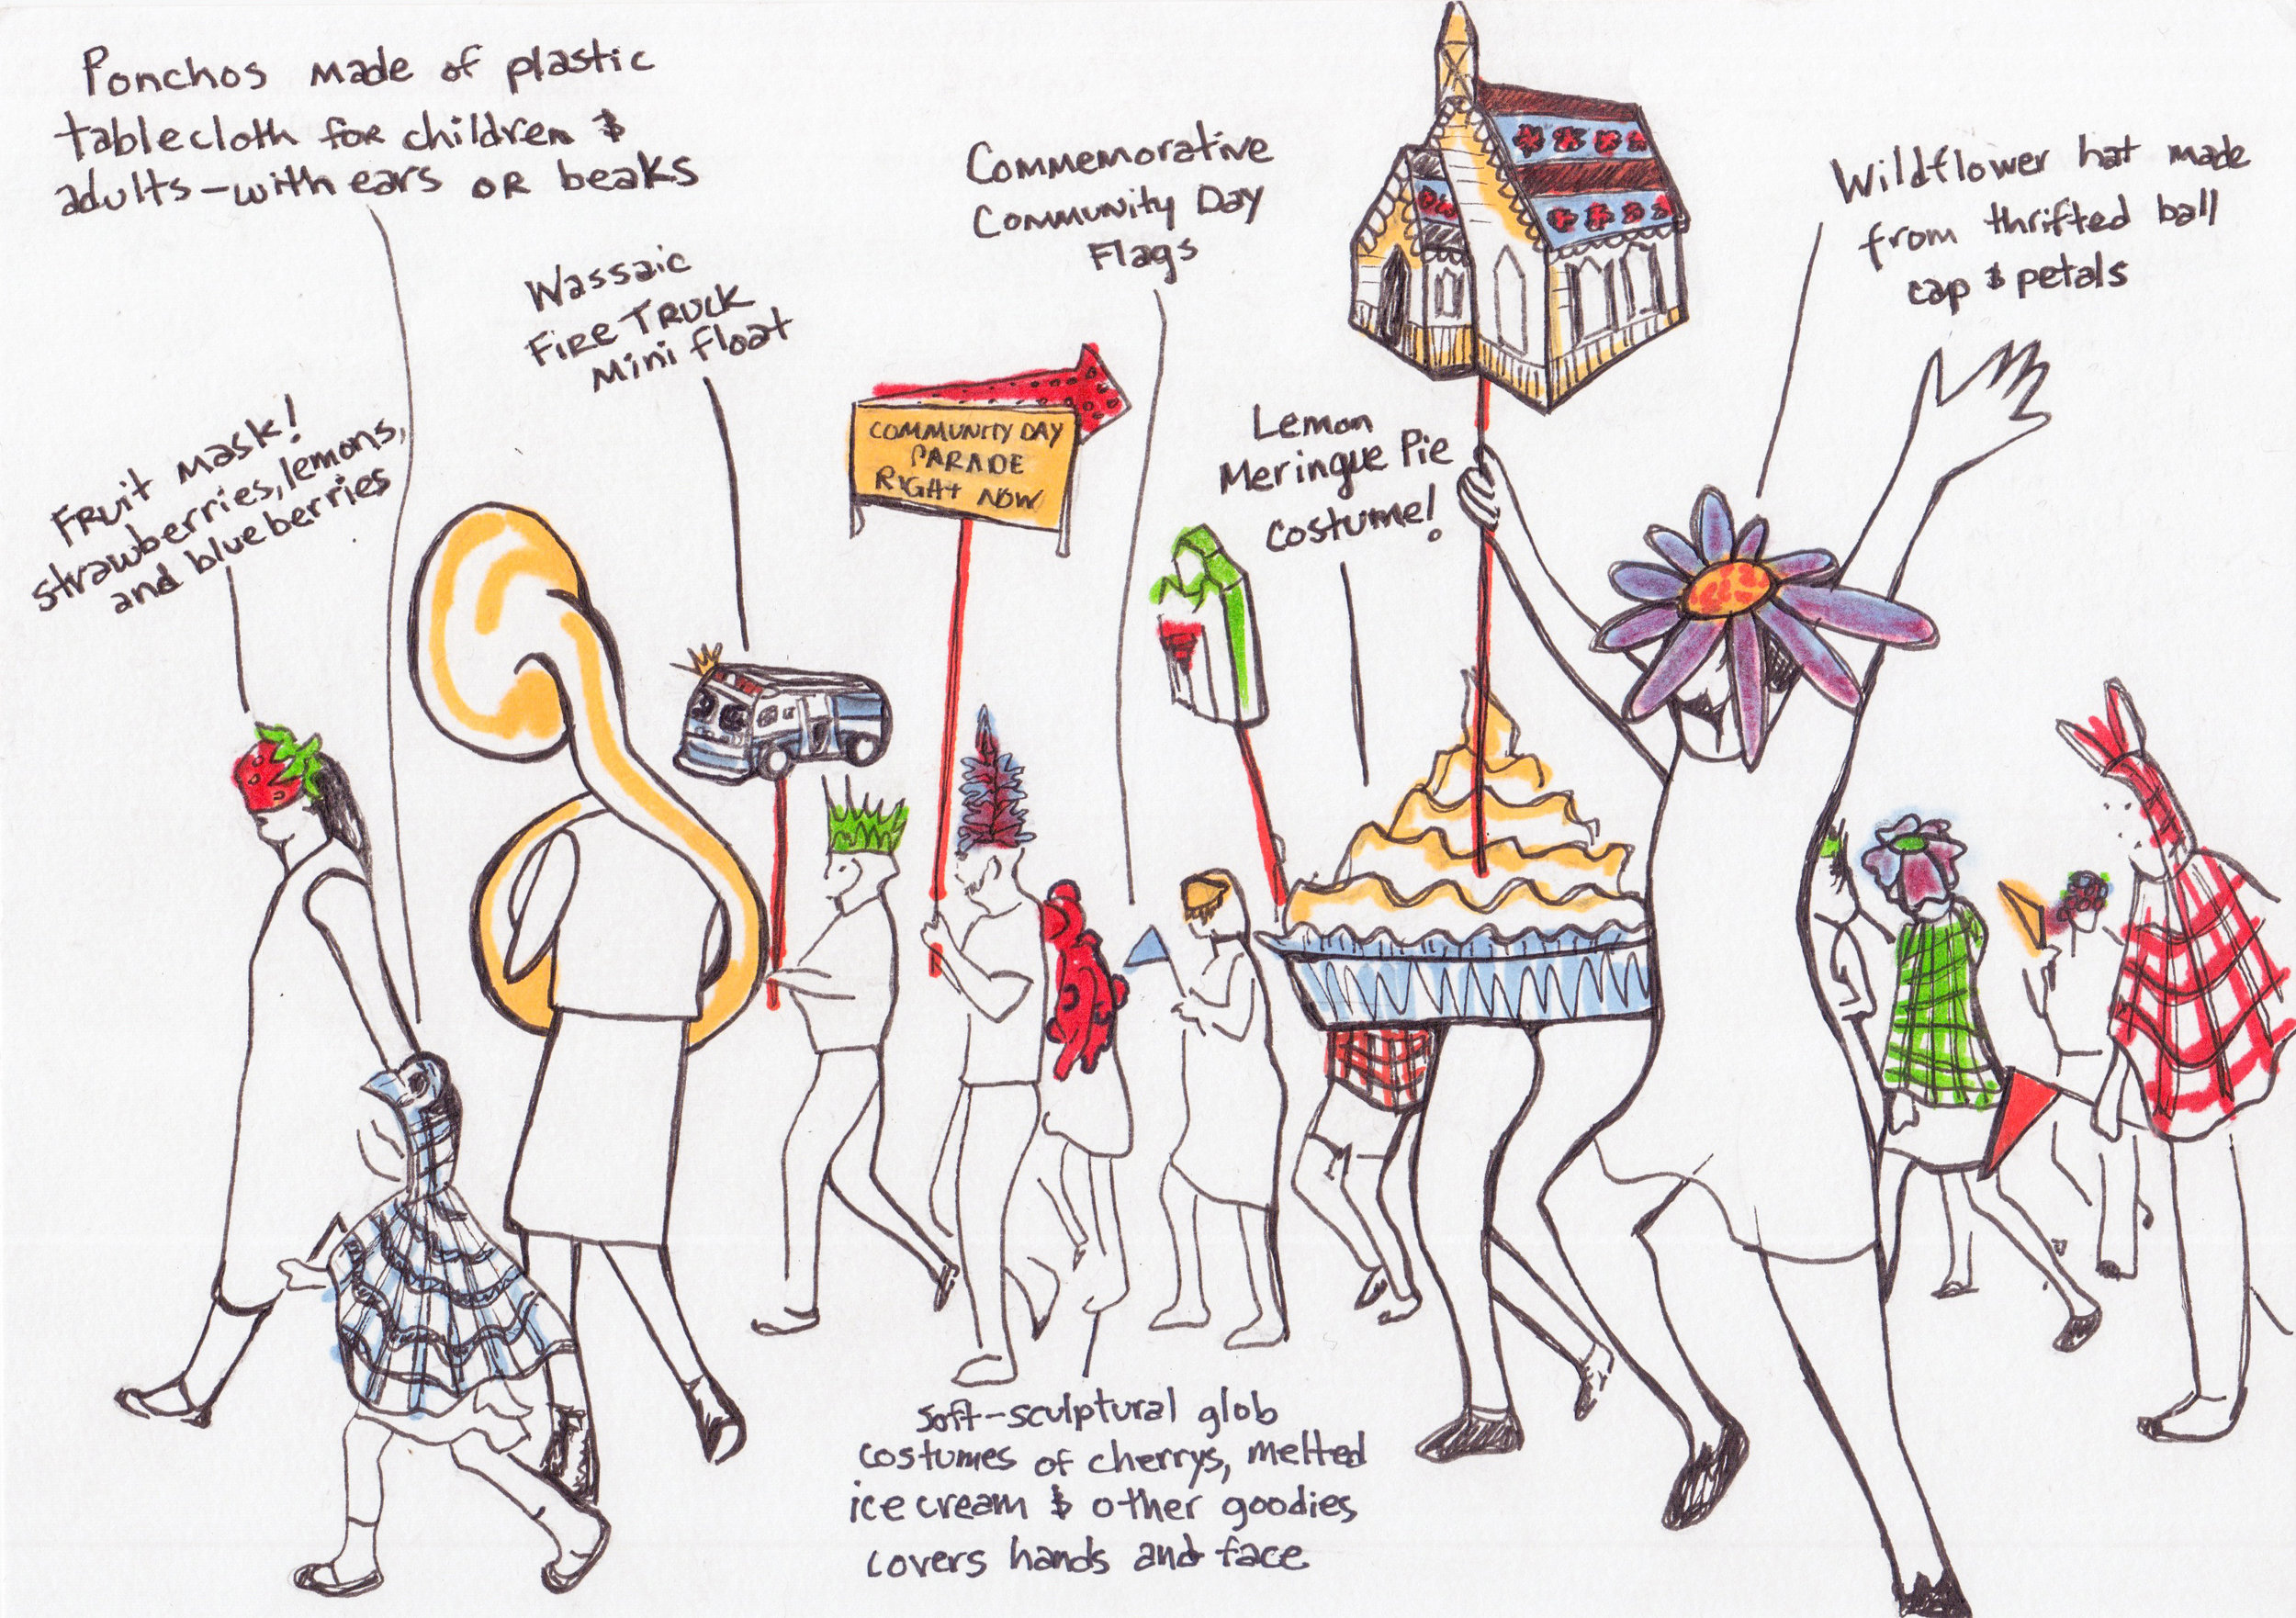 Ponchos made of plastic
tablecloth for children &
adults - with ears or beaks
Fruit mask!
strawberries, lemons,
and blueberries
Wassaic
Fire Truck
Mini float
Commemorative
Community Day
Flags
COMMUNITY DAY
PARADE
RIGHT NOW
Lemon
Meringue Pie
costume!
Wildflower hat made
from thrifted ball
cap & petals
soft-sculptural glob
costumes of cherrys, melted
ice cream & other goodies
covers hands and face